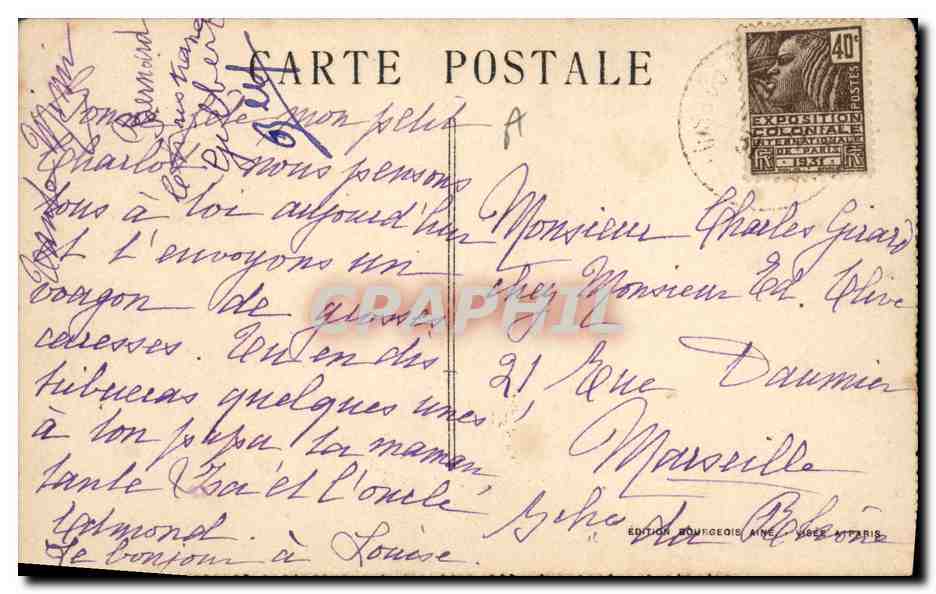 CARTE POSTALE
Bonne fête mon petit
Charlot nous pensons
tous à toi aujourd'hui
et t'envoyons un
wagon de grosses
caresses. Tu en dis
tribueras quelques unes
à ton papa ta maman
tante Isa et l'oncle
Edmond.
Le bonjour à Louise.
Bernard
Gilbert
A
40c
POSTES
EXPOSITION
COLONIALE
INTERNATIONALE
DE PARIS
1931
Monsieur Charles Girard
chez Monsieur Ed. Olive
21, Rue Daumier
Marseille
du Rhône
EDITION BOURGEOIS AINÉ - VISÉE A PARIS
CRAPHIL